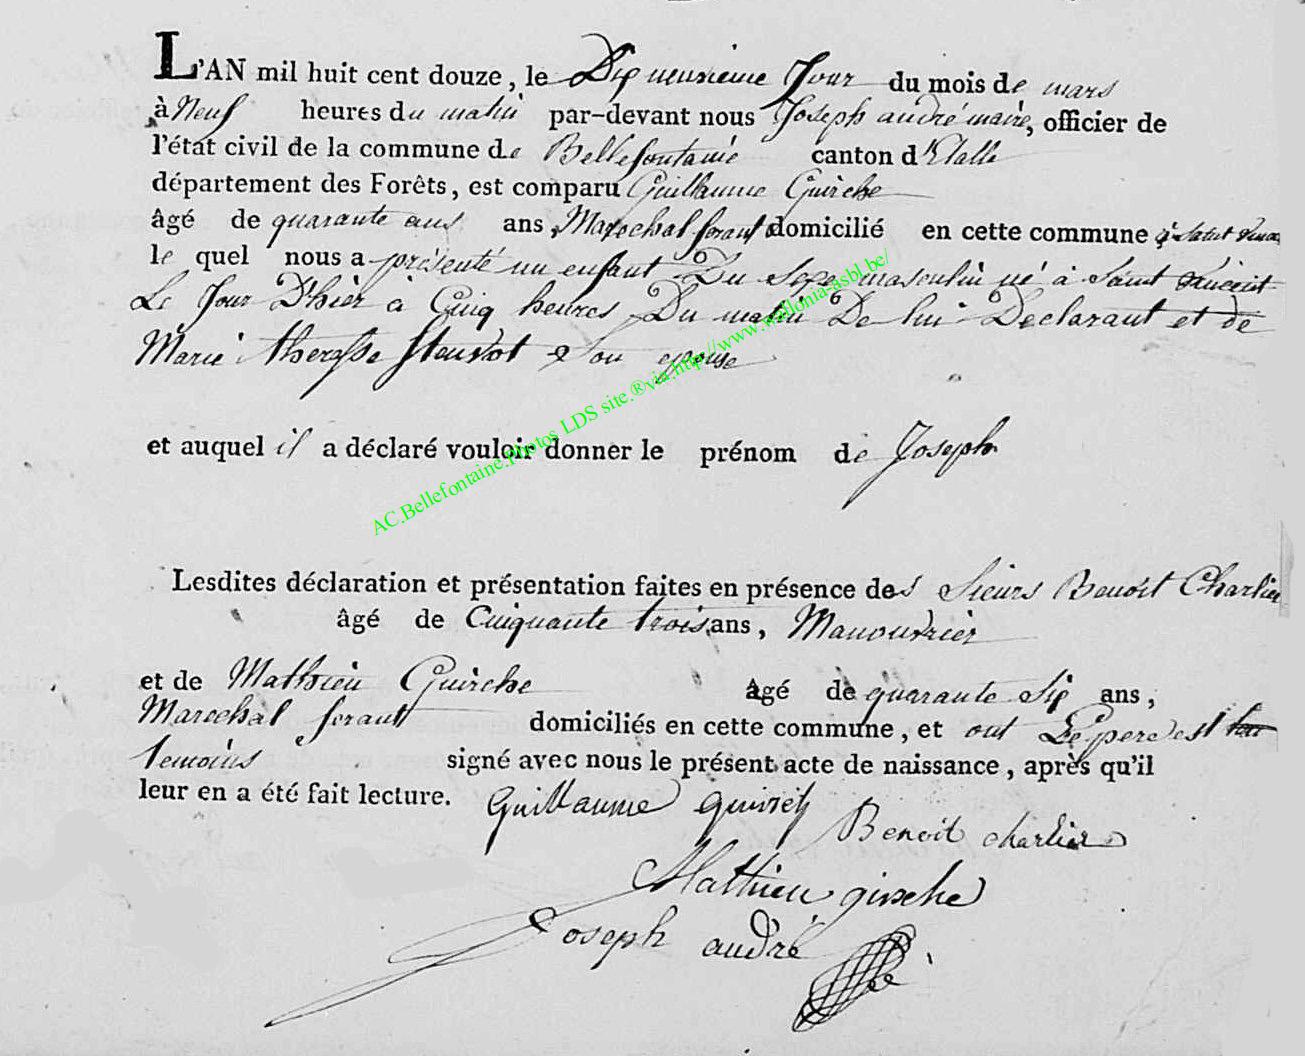 L'AN mil huit cent douze, le Dix neuvieme Jour du mois de mars
à Neuf heures du matin par-devant nous Joseph andré maire, officier de
l'état civil de la commune de Bellefontaine canton d'Etalle
département des Forêts, est comparu Guillaume Guirche
âgé de quarante ans ans, Marechal ferant domicilié en cette commune à saint
le quel nous a présenté un enfant Du Sexe masculin né à Saint Vincent
Le Jour D'hier à Cinq heures Du matin De lui Declarant et de
Marie theresse son epouse
et auquel il a déclaré vouloir donner le prénom de Joseph
Lesdites déclaration et présentation faites en présence des Sieurs Benoit Charlier
âgé de Cinquante trois ans, Manouvrier
et de Mathieu Guirche âgé de quarante Six ans,
Marechal ferant domiciliés en cette commune, et ont Le pere et les
temoins signé avec nous le présent acte de naissance, après qu'il
leur en a été fait lecture. Guillaume
Benoit charlier
Mathieu girsche
Joseph andré
AC.Bellefontaine.Photos LDS site.®via.http://www.wallonia-asbl.be/